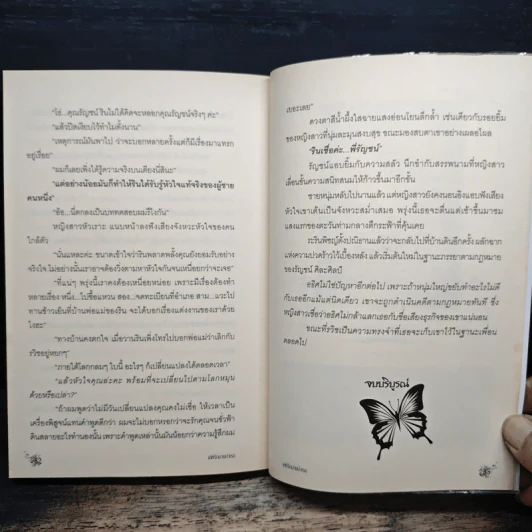 "โธ่...คุณรัญชน์ รินไม่ได้คิดจะหลอกคุณรัญชน์จริงๆ ค่ะ"
"แล้วปิดเงียบไว้ทำไมตั้งนาน"
"เหตุการณ์มันพาไป ว่าจะบอกหลายครั้งแต่ก็มีเรื่องมาแทรก
อยู่เรื่อย"
"ผมก็เลยเพิ่งได้รู้ความจริงบนเตียงนี่สินะ"
"แต่อย่างน้อยมันก็ทำให้รินได้รับรู้หัวใจแท้จริงของผู้ชาย
คนหนึ่ง"
"อ้อ...นี่ตกลงเป็นบททดสอบผมรึไงกัน"
หญิงสาวหัวเราะ แนบหน้าลงฟังเสียงจังหวะหัวใจของคน
ใกล้ตัว
"นั่นแหละค่ะ ขนาดเข้าใจว่ารินพลาดพลั้งคุณยังยอมรับอย่าง
จริงใจ ไม่อย่างนั้นเราอาจต้องวิ่งตามหาหัวใจกันจนเหนื่อยกว่าจะเจอ"
"ที่แน่ๆ พรุ่งนี้เราคงต้องเหนื่อยหน่อย เพราะมีเรื่องต้องทำ
หลายเรื่อง หนึ่ง...ไปซื้อแหวน สอง...จดทะเบียนที่อำเภอ สาม...แวะไป
ทานข้าวเย็นที่บ้านพ่อแม่ของริน จะได้บอกเรื่องแต่งงานของเราด้วย
ไงฮะ"
"ทางบ้านคงตกใจ เมื่อวานรินเพิ่งโทรไปบอกพ่อแม่ว่าเลิกกับ
รวิชอยู่หยกๆ"
"ภายใต้โลกกลมๆ ใบนี้ อะไรๆ ก็เปลี่ยนแปลงได้ตลอดเวลา"
"แล้วหัวใจคุณล่ะคะ พร้อมที่จะเปลี่ยนไปตามโลกหมุน
ด้วยหรือเปล่า?"
"ถ้าผมพูดว่าไม่มีวันเปลี่ยนแปลงคุณคงไม่เชื่อ ให้เวลาเป็น
เครื่องพิสูจน์แทนคำพูดดีกว่า ผมจะไม่บอกหรอกว่าจะรักคุณจนชั่วฟ้า
ดินสลายอะไรทำนองนั้น เพราะคำพูดเหล่านั้นมันน้อยกว่าความรู้สึกผม
เยอะเลย"
ดวงตาสีน้ำผึ้งใสฉายแสงอ่อนโยนลึกล้ำ เช่นเดียวกับรอยยิ้ม
ของหญิงสาวที่นุ่มละมุนสงบสุข ขณะมองสบตาเขาอย่างเผลอไผล
"รินเชื่อค่ะ... พี่รัญชน์"
รัญชน์แอบยิ้มกับความสลัว นึกขำกับสรรพนามที่หญิงสาว
เลื่อนขั้นความสนิทสนมให้ก้าวขึ้นมาอีกขั้น
ชายหนุ่มหลับไปนานแล้ว แต่หญิงสาวยังคงนอนอิงแอบฟังเสียง
หัวใจเขาเต้นเป็นจังหวะสม่ำเสมอ พรุ่งนี้เธอจะตื่นแต่เช้าขึ้นมาชม
แสงแรกของตะวันท่ามกลางตึกระฟ้าที่คุ้นเคย
ระรินพิชญ์ตั้งปณิธานแล้วว่าจะกลับไปที่บ้านดินอีกครั้ง ผลักฉาก
แห่งความปวดร้าวไว้เบื้องหลัง แล้วเริ่มต้นใหม่ในฐานะภรรยาตามกฎหมาย
ของรัญชน์ ศิลาศิลป์
อธิคไม่ใช่ปัญหาอีกต่อไป เพราะถ้าหนุ่มใหญ่ขยับทำอะไรไม่ดี
กับเธออีกแม้แต่นิดเดียว เขาจะถูกดำเนินคดีตามกฎหมายทันที ซึ่ง
หญิงสาวเชื่อว่าอธิคไม่กล้าแลกเธอกับชื่อเสียงธุรกิจของเขาแน่นอน
ขณะที่รวิชเป็นความทรงจำที่เธอจะเก็บเขาไว้ในฐานะเพื่อน
ตลอดไป
จบบริบูรณ์